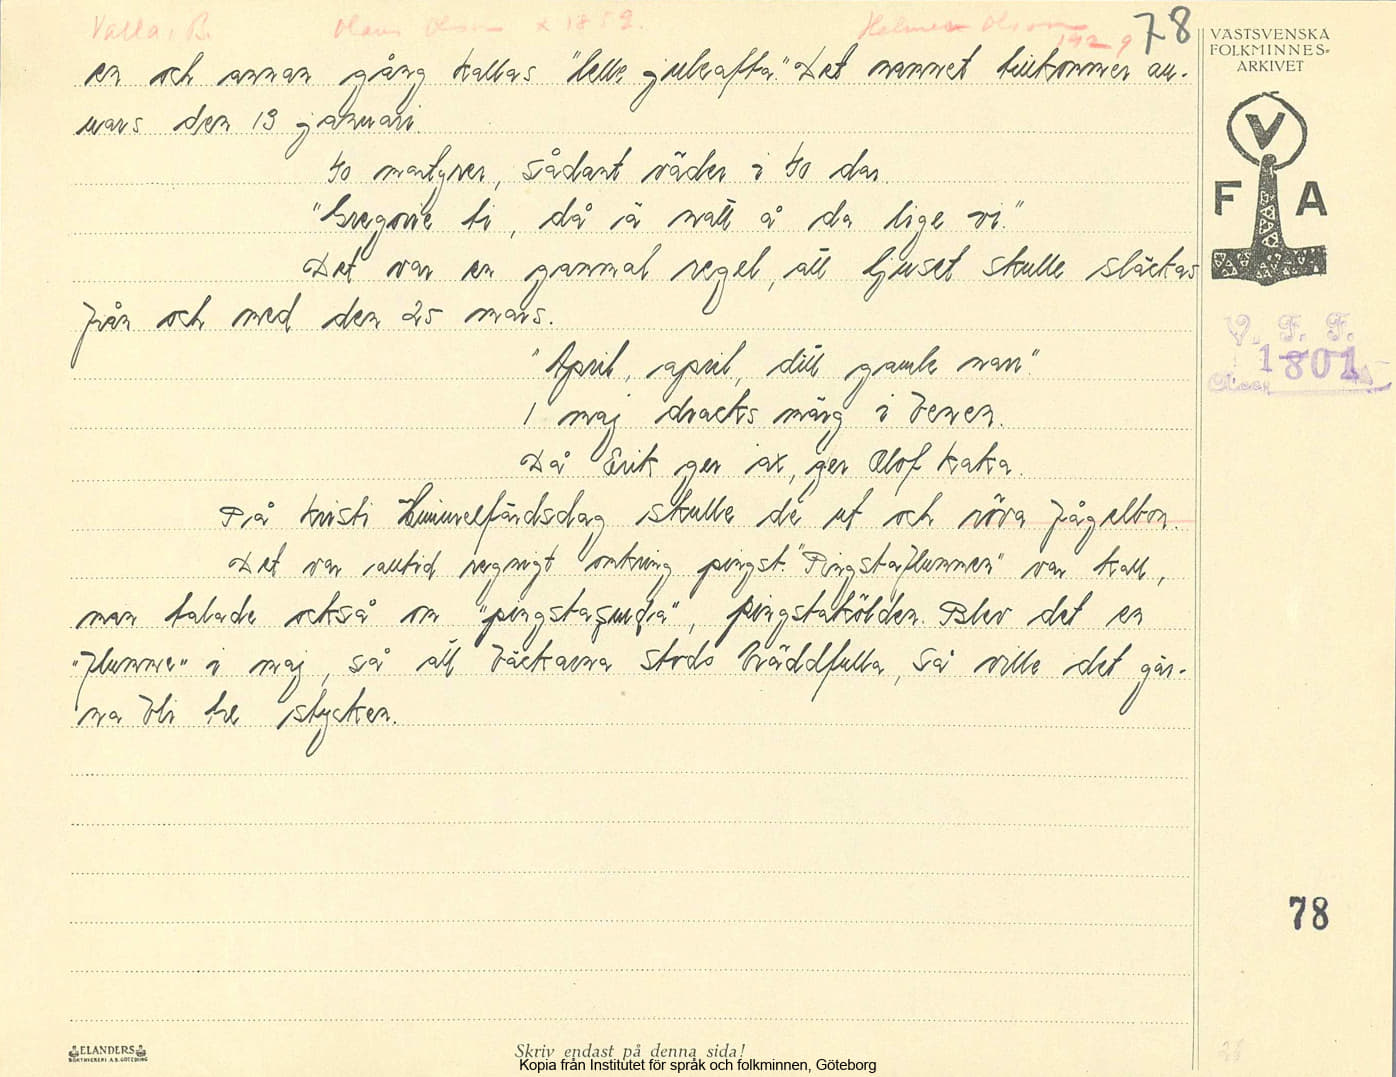 Valla, B. Olaus Olsson x 1852. Helmer Olsson 1929 78
VÄSTSVENSKA
FOLKMINNES-
ARKIVET
en och annan gång kallas "lelle juleafta." Det namnet tillkommer an-
nars den 13 januari.
40 martyrer, sådant väder i 40 dar.
"Gregorie ti, då ä natt å da lige vi."
Det var en gammal regel, att ljuset skulle släckas
från och med den 25 mars.
"April, april, ditt gamle narr"
1 maj dracks märg i benen.
Då Erik ger ax, ger Olof kaka.
På Kristi Himmelfärdsdag skulle de ut och röva fågelbon.
Det var alltid regnigt omkring pingst. "Pingstaflummen" var kall,
man talade också om "pingsta", pingstakölden. Blev det en
"flumme" i maj, så att bäckarna stodo bräddfulla, så ville det gär-
na bli tre stycken.
V
F A
V. F. F.
1801
78
ELANDERS
BOKTRYCKERI A.B. GÖTEBORG
Skriv endast på denna sida!
Kopia från Institutet för språk och folkminnen, Göteborg